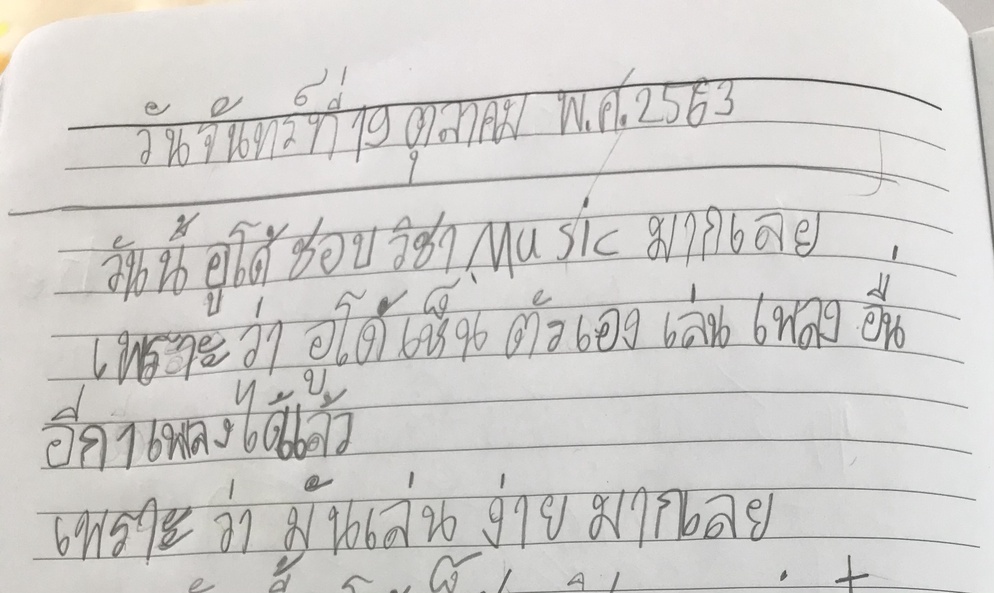 วันจันทร์ที่ 19 ตุลาคม พ.ศ. 2563
วันนี้ อูโด้ ชอบ วิชา Music มากเลย
เพราะว่า อูโด้เห็น ตัวเอง เล่น เพลง อื่น
อีก 1 เพลงได้แล้ว
เพราะ ว่า มันเล่น ง่าย มากเลย